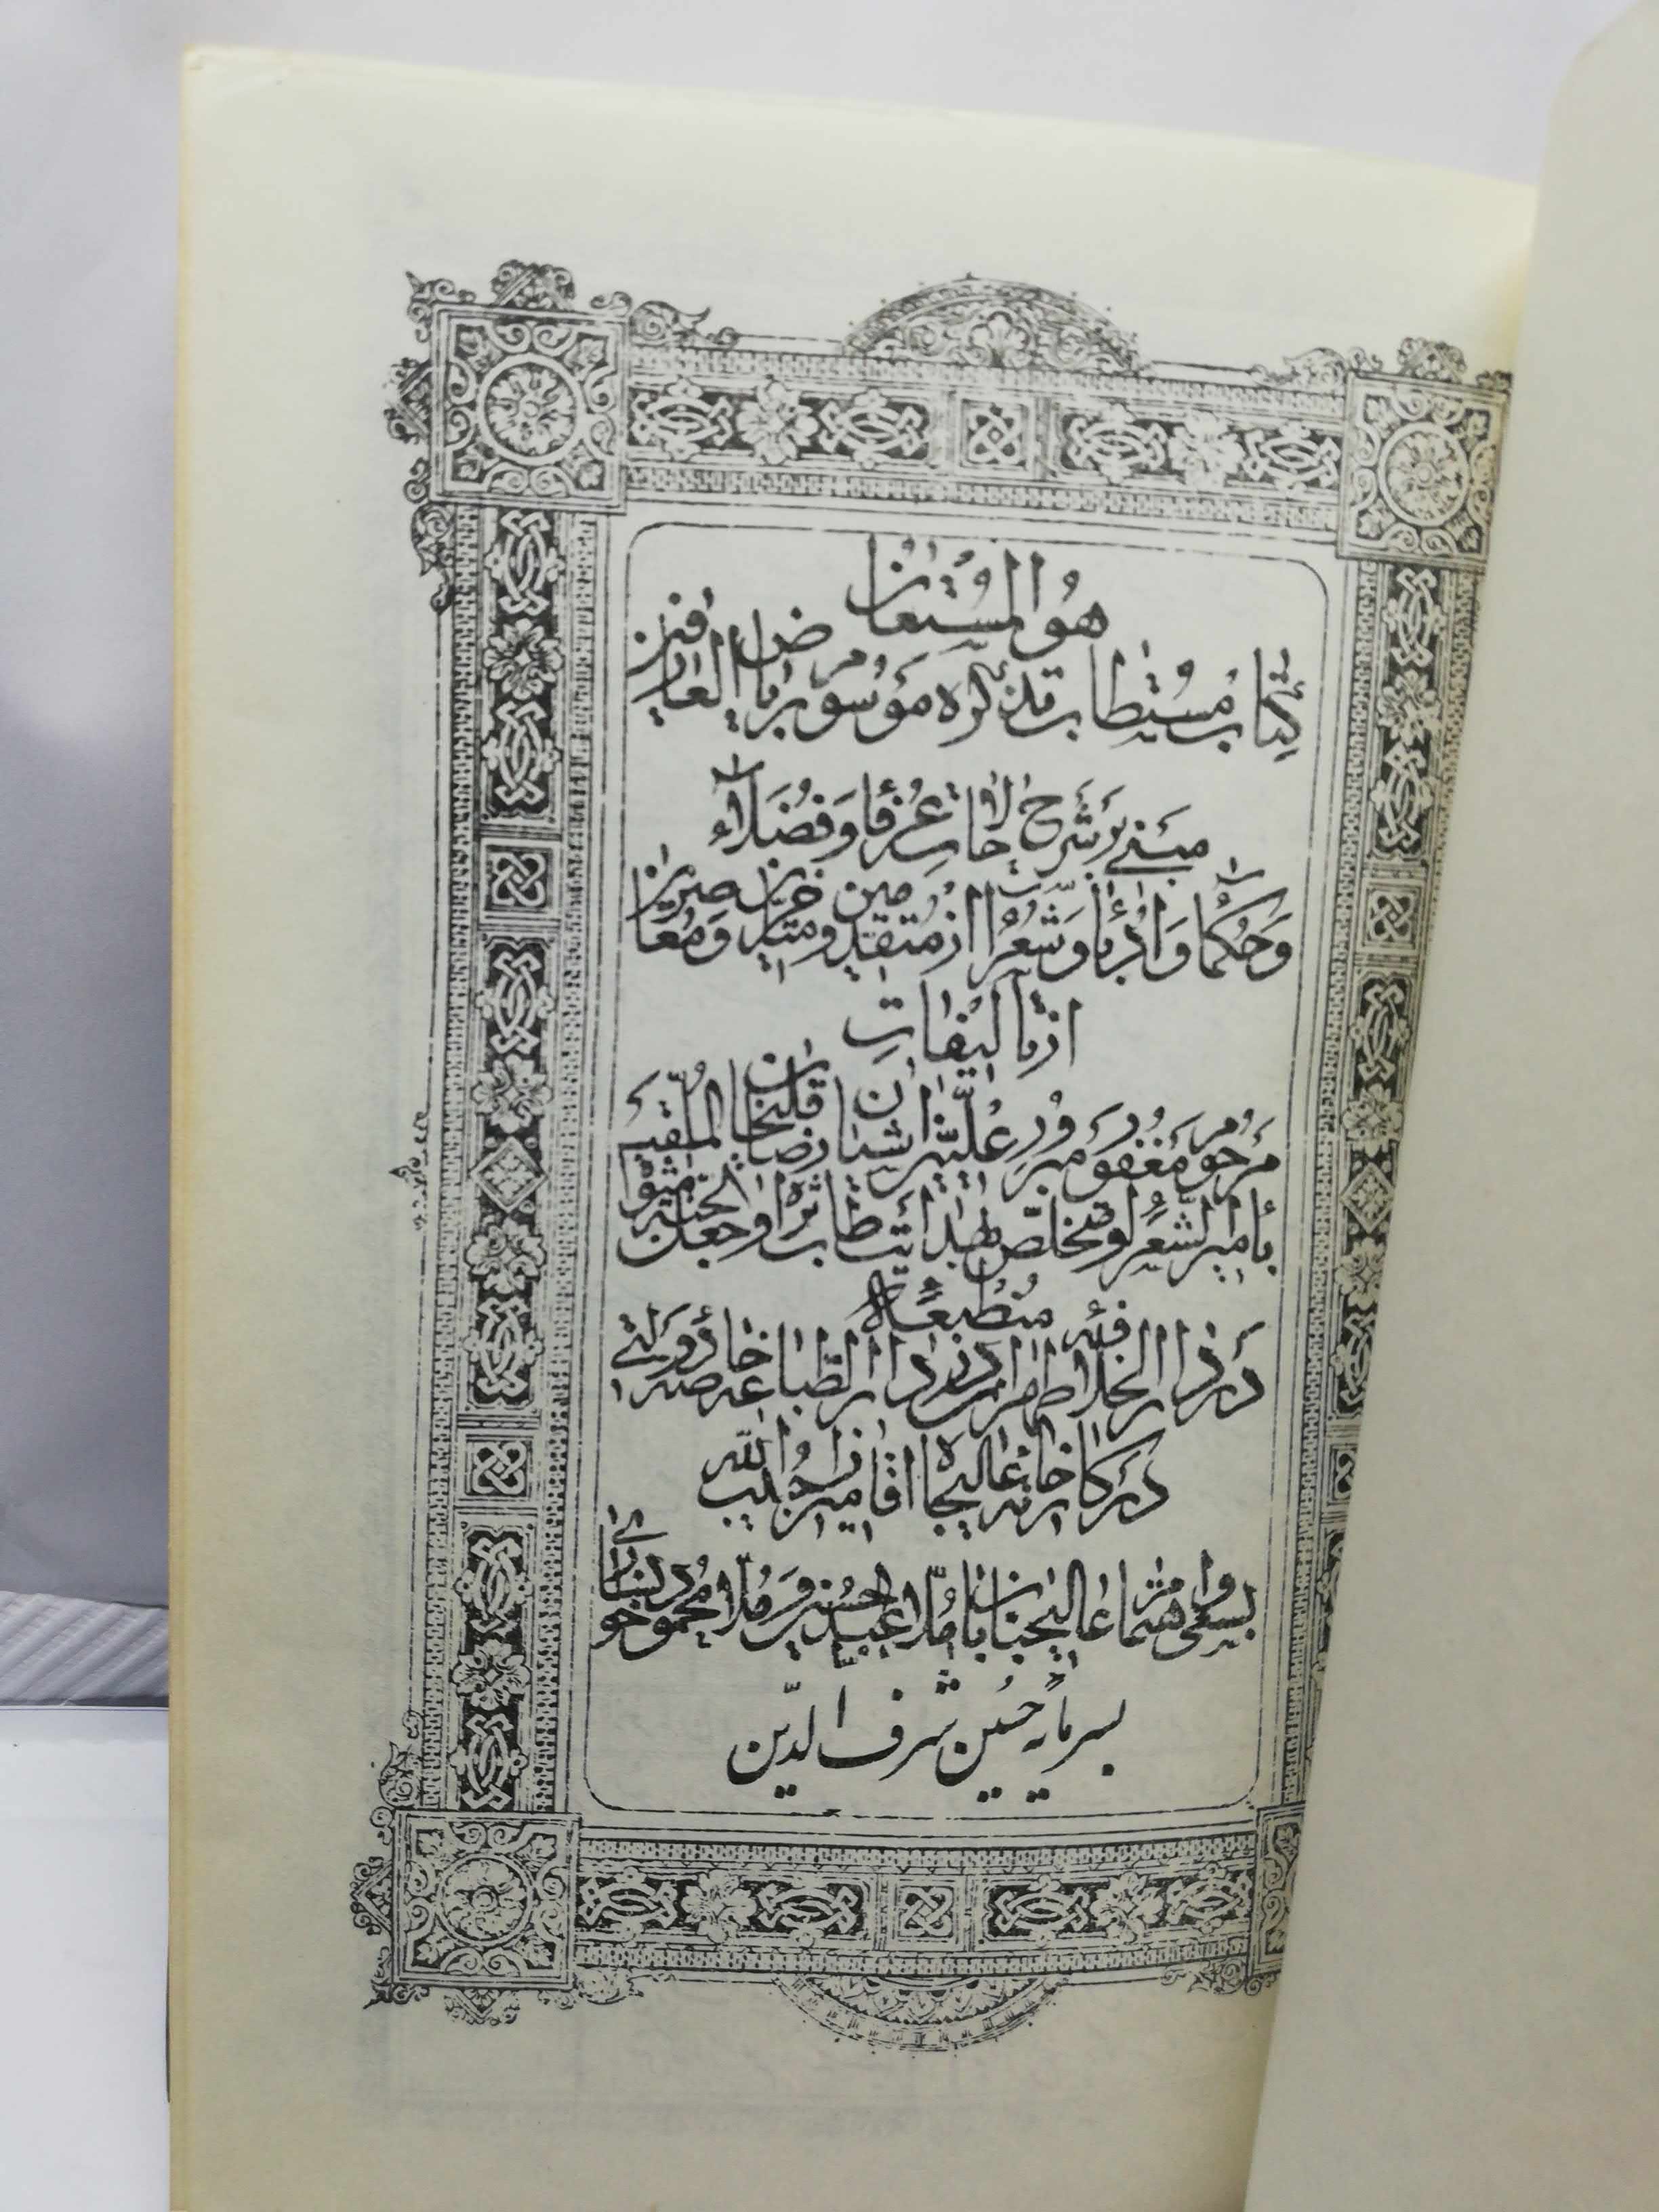 هو المستعان
کتاب مستطاب تذکره موسوم بریاض العارفین
مبنی بر شرح حالات عرفا و فضلاء
و حکما و ادبا و شعرا از متقدمین و متاخرین و معاصرین
از تألیفات
مرحوم مغفور مبرور علیین آشیان رضا قلیخان الملقب
بامیر الشعرا و تخلص بهدایت طاب ثراه و جعل الجنة مثواه
در دار الخلافه طهران در دار الطباعه خاصه دولتی منطبعه
در کارخانه عالیجاه آقا میرزا حبیب الله
بسعی و اهتمام عالیجنابان ملا عبد الحسین و ملا محمود خوانساری
بسرمایه حسین شرف الدین